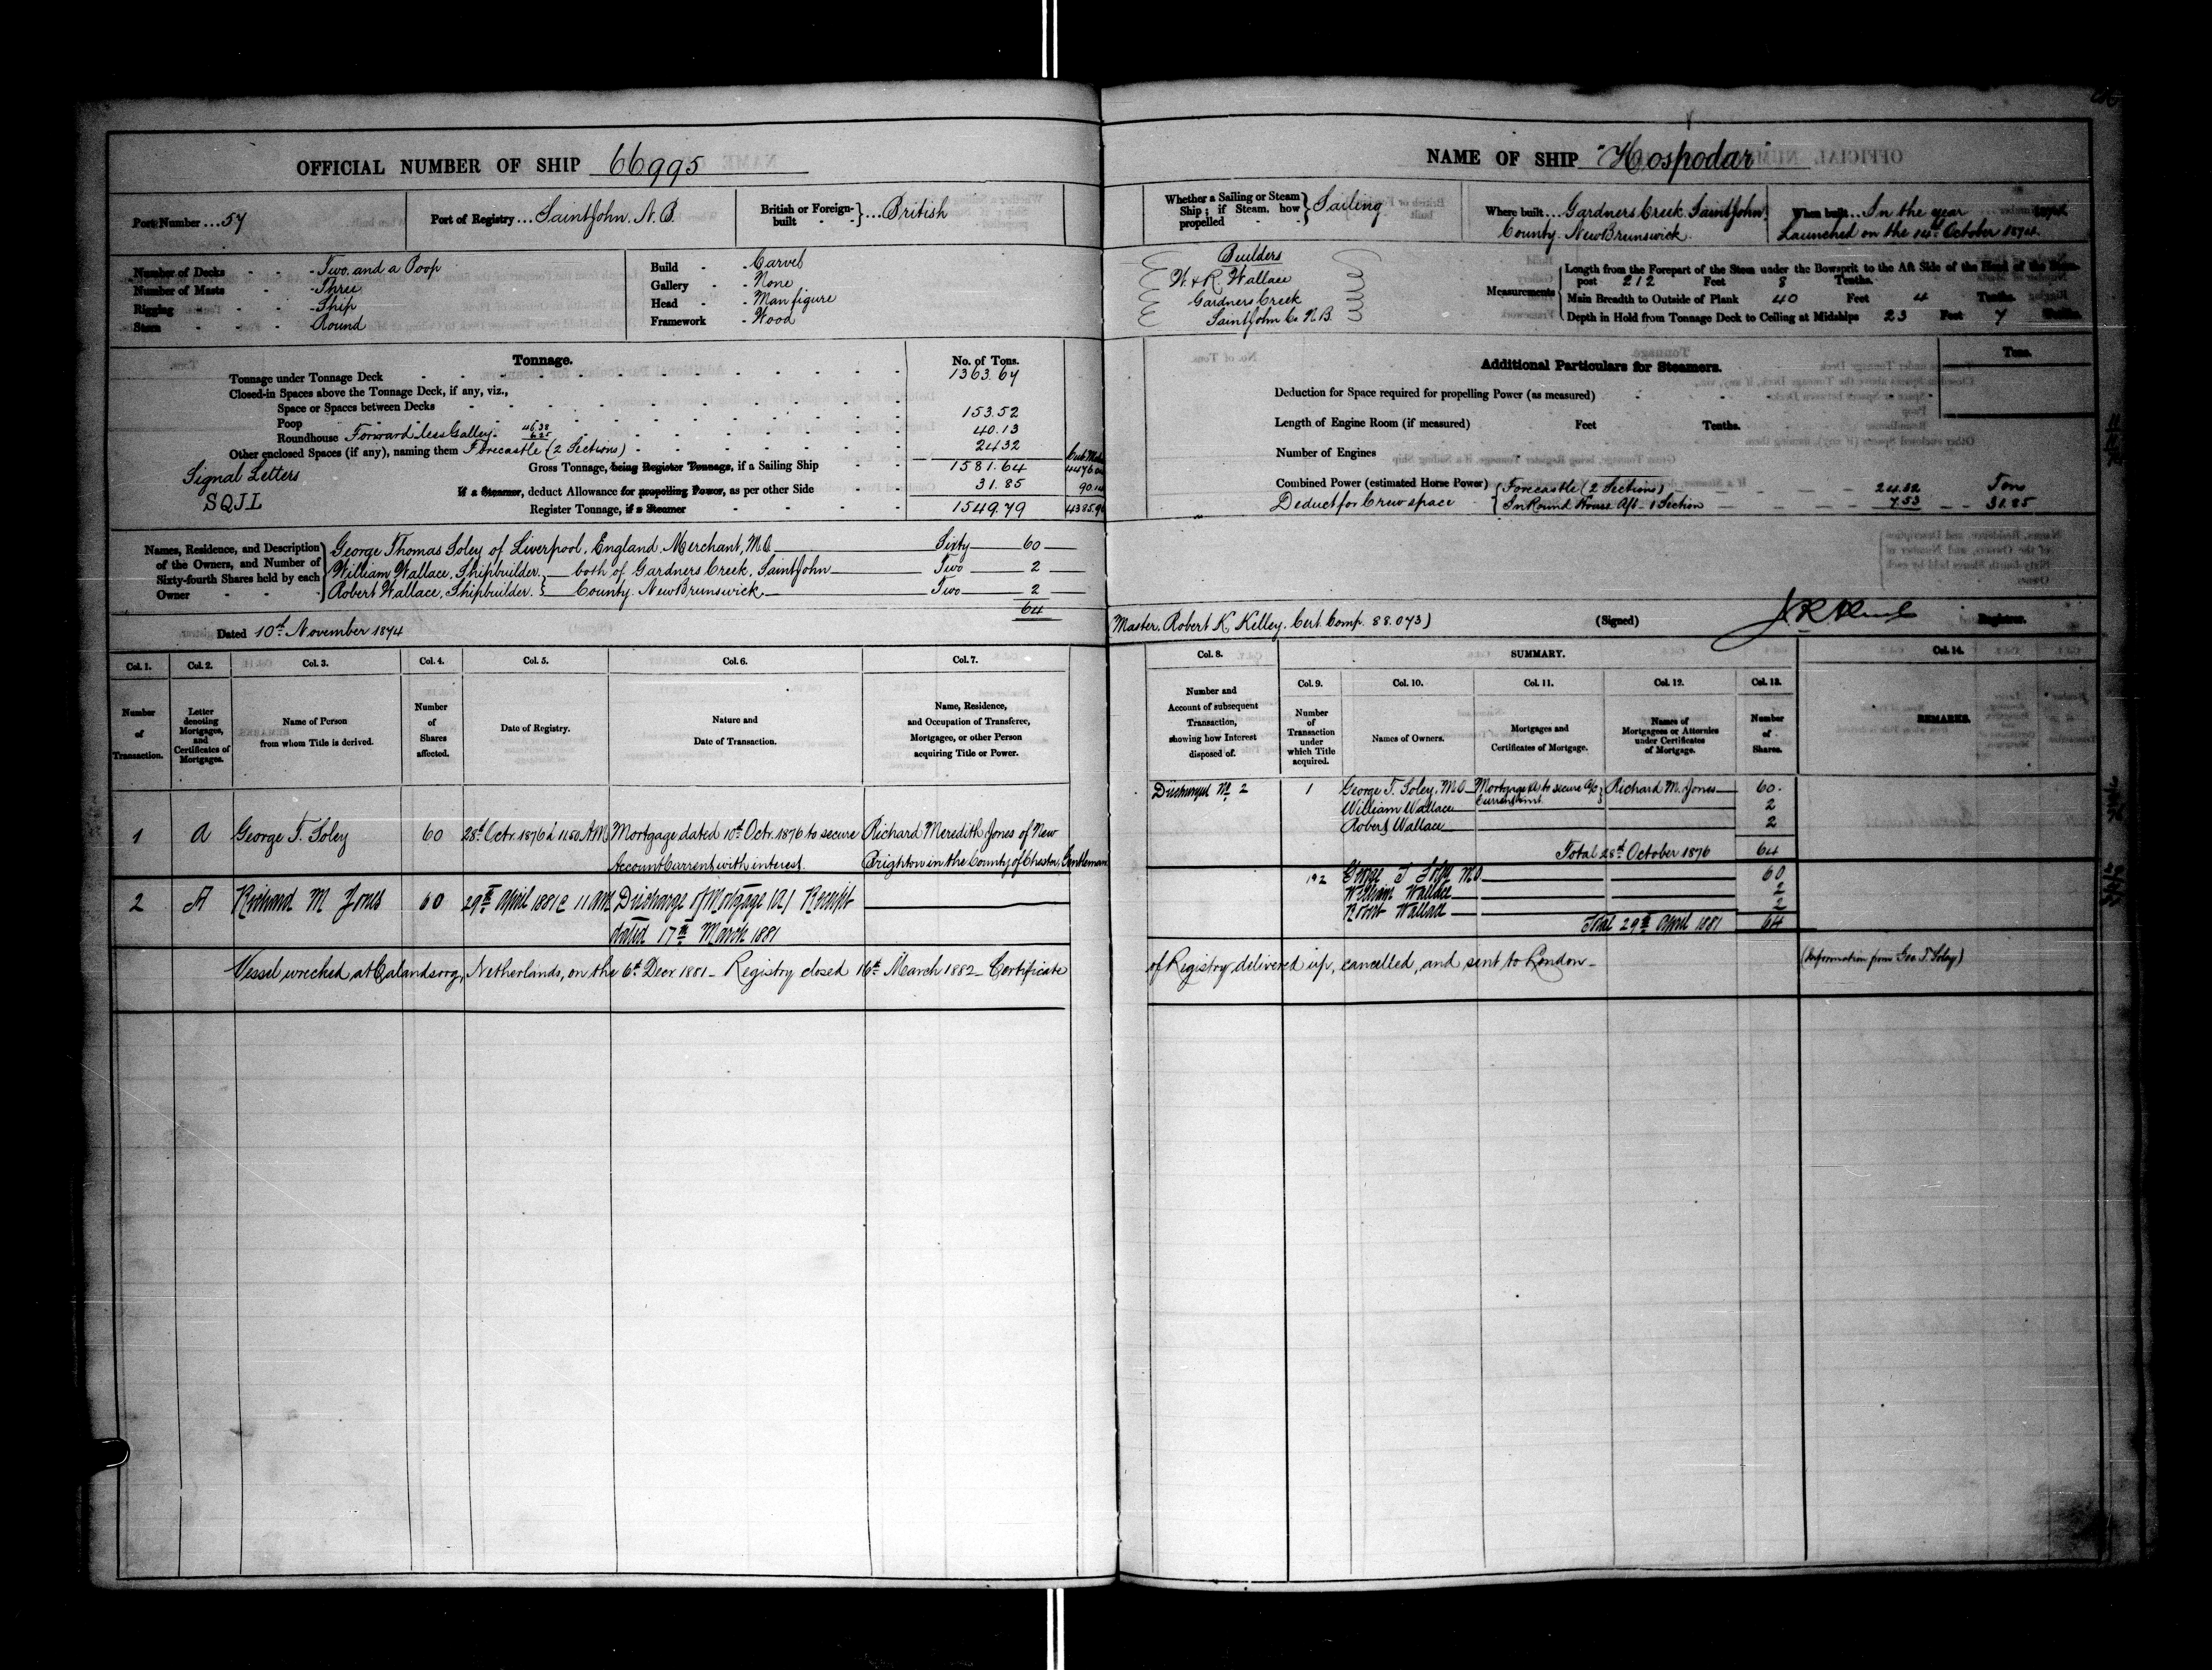 OFFICIAL NUMBER OF SHIP 66995
Port Number ... 57
Port of Registry ... Saint John. N.B.
British or Foreign-built } ... British
Number of Decks - Two and a Poop
Number of Masts - Three
Rigging - Ship
Stern - Round
Build - Carvel
Gallery - None
Head - Man figure
Framework - Wood
Tonnage. No. of Tons.
Tonnage under Tonnage Deck 1363.67
Closed-in Spaces above the Tonnage Deck, if any, viz.,
Space or Spaces between Decks
Poop 153.52
Roundhouse Forward less Galley. 46.38 6.25 40.13
Other enclosed Spaces (if any), naming them Forecastle (2 Sections) 24.32
Signal Letters
SQJL
Gross Tonnage, being Register Tonnage, if a Sailing Ship 1581.64
If a Steamer, deduct Allowance for propelling Power, as per other Side 31.85
Register Tonnage, if a Steamer 1549.79
Names, Residence, and Description of the Owners, and Number of Sixty-fourth Shares held by each Owner
George Thomas Soley of Liverpool, England. Merchant, M.O. Sixty 60
William Wallace, Shipbuilder. } both of Gardners Creek, Saint John Two 2
Robert Wallace, Shipbuilder. } County. New Brunswick Two 2
64
Dated 10th November 1874
Col. 1. Col. 2. Col. 3. Col. 4. Col. 5. Col. 6. Col. 7.
Number of Transaction.
Letter denoting Mortgages, and Certificates of Mortgages.
Name of Person from whom Title is derived.
Number of Shares affected.
Date of Registry.
Nature and Date of Transaction.
Name, Residence, and Occupation of Transferee, Mortgagee, or other Person acquiring Title or Power.
1 A George T. Soley 60 28th Octr. 1876 à 11.50 A.M. Mortgage dated 10th Octr. 1876 to secure Richard Meredith Jones of New
Account Current with interest. Brighton in the County of Chester, Gentleman
2 A Richard M Jones 60 29th April 1881 @ 11 am Discharge of Mortgage (A) Receipt
dated 17th March 1881
Vessel wrecked at Calandsoog, Netherlands, on the 6th Decr 1881 - Registry closed 16th March 1882 - Certificate
NAME OF SHIP "Hospodar"
Whether a Sailing or Steam Ship; if Steam, how propelled } Sailing
Where built ... Gardners Creek. Saint John
County. New Brunswick.
When built ... In the year
Launched on the 14th October 1874
Builders
W. & R. Wallace
Gardners Creek
Saint John Co. N.B.
Measurements
Length from the Forepart of the Stem under the Bowsprit to the Aft Side of the Head of the Stern-
post 212 Feet 8 Tenths.
Main Breadth to Outside of Plank 40 Feet 4 Tenths.
Depth in Hold from Tonnage Deck to Ceiling at Midships 23 Feet 7 Tenths.
Additional Particulars for Steamers.
Tons.
Deduction for Space required for propelling Power (as measured)
Length of Engine Room (if measured) Feet Tenths.
Number of Engines
Combined Power (estimated Horse Power)
Deduct for Crew space { Forecastle (2 Sections) 24.32 Tons
In Round House Aft - 1 Section 7.53 31.85
Master. Robert K. Kelley. Cert. Comp. 88.073)
(Signed)
Registrar.
Col. 8. SUMMARY. Col. 14.
Col. 9. Col. 10. Col. 11. Col. 12. Col. 13.
Number and Account of subsequent Transaction, showing how Interest disposed of.
Number of Transaction under which Title acquired.
Names of Owners.
Mortgages and Certificates of Mortgage.
Names of Mortgagees or Attornies under Certificates of Mortgage.
Number of Shares.
REMARKS.
Discharged No. 2 1 George T. Soley. M.O. Mortgage A to secure a/c Richard M. Jones 60.
William Wallace Current &c 2
Robert Wallace 2
Total 28th October 1876 64
1 & 2 George T Soley M.O 60
William Wallace 2
Robert Wallace 2
Total 29th April 1881 64
of Registry delivered up, cancelled, and sent to London - (Information from Geo. T. Soley)